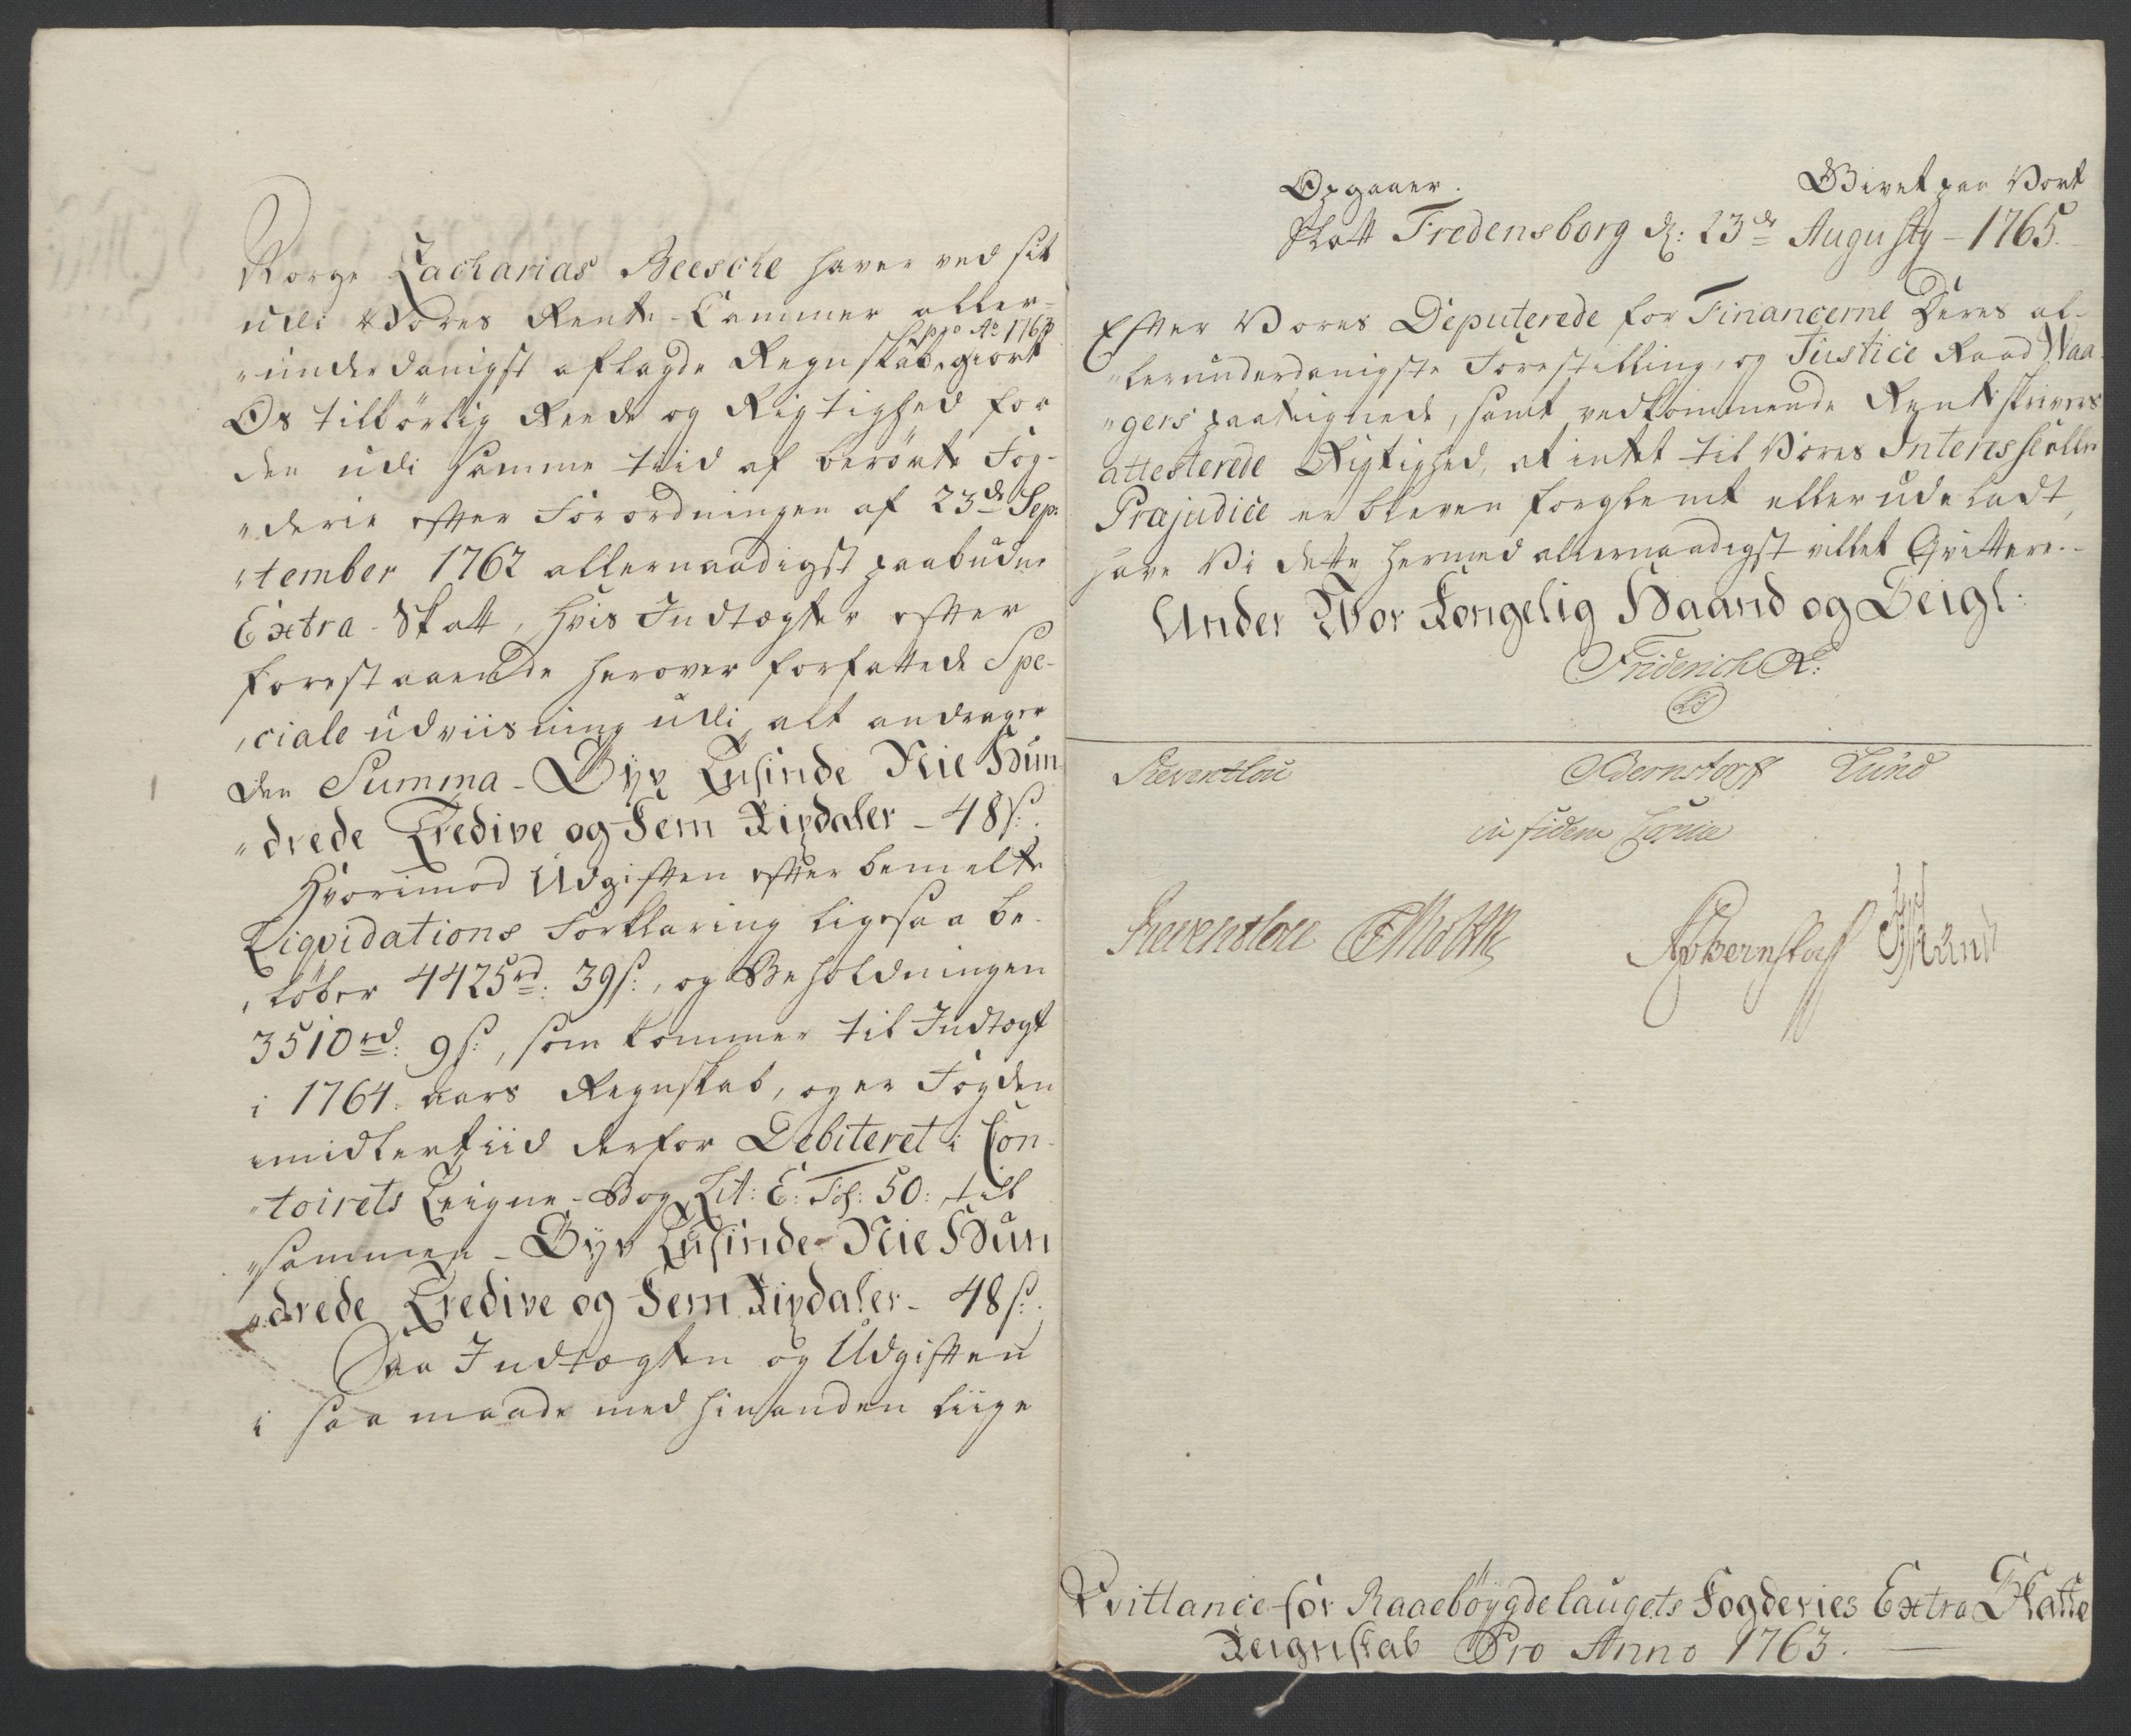 Norge Zacharias Beesche haver ved sit
udi Vores Rente-Cammer aller-
pro Ao 1763
"underdanigst aflagde Regnskab, giort
Os tilbörlig Reede og Rigtighed for
den udi samme tiid af berörte Fog-
"derie efter Forordningen af 23de Sep-
"tember 1762 allernaadigst paabudne
Extra-Skatt, hvis Indtægter efter
forestaaende herover forfattede Spe-
"ciale udviisning udi alt andrager
den Summa - Syv Tusinde Nie Hun
"drede Tredive og Fem Rixdaler - 48 s:
Hvorimod Udgiften efter bemelte
Liqvidations Forklaring ligesaa be-
"löber 4425rd: 39 s:, og Beholdningen
3510rd: 9 s:, som kommer til Indtægt
i 1764 aars Regnskab, og er Fogden
imidlertiid derfor Debiteret i Con-
"toirets Reigne-Bog Lit: E: Fol: 50: til
"sammen - Syv Tusinde Nie Hun
"drede Tredive og Fem Rixdaler - 48 s:
Saa Indtægten og Udgiften
i saa maade med hinanden liige
Opgaaer. Givet paa Vort
Slott Fredensborg d: 23de Augusty - 1765.
Efter Vores Deputerede for Financerne Deres al-
"lerunderdanigste Forestilling, og Justice Raad Waa-
"gers paategnede, samt vedkommende Renteskrivers
attesterede Rigtighed, at intet til Vores Interesse eller
Præjudice er bleven forglemt eller udeladt,
have Vi dette hermed allernaadigst villet Qvittere.-
Under Vor Kongelig Haand og Seigl:
Friderich R:
LS
Reventlou Bernstorff Lund
in fidem
Reventlou Bernstorff Lund
Qvittance for Raaebøygdelaugets Fogderies Extra Skatte
Reignskab Pro Anno 1763.